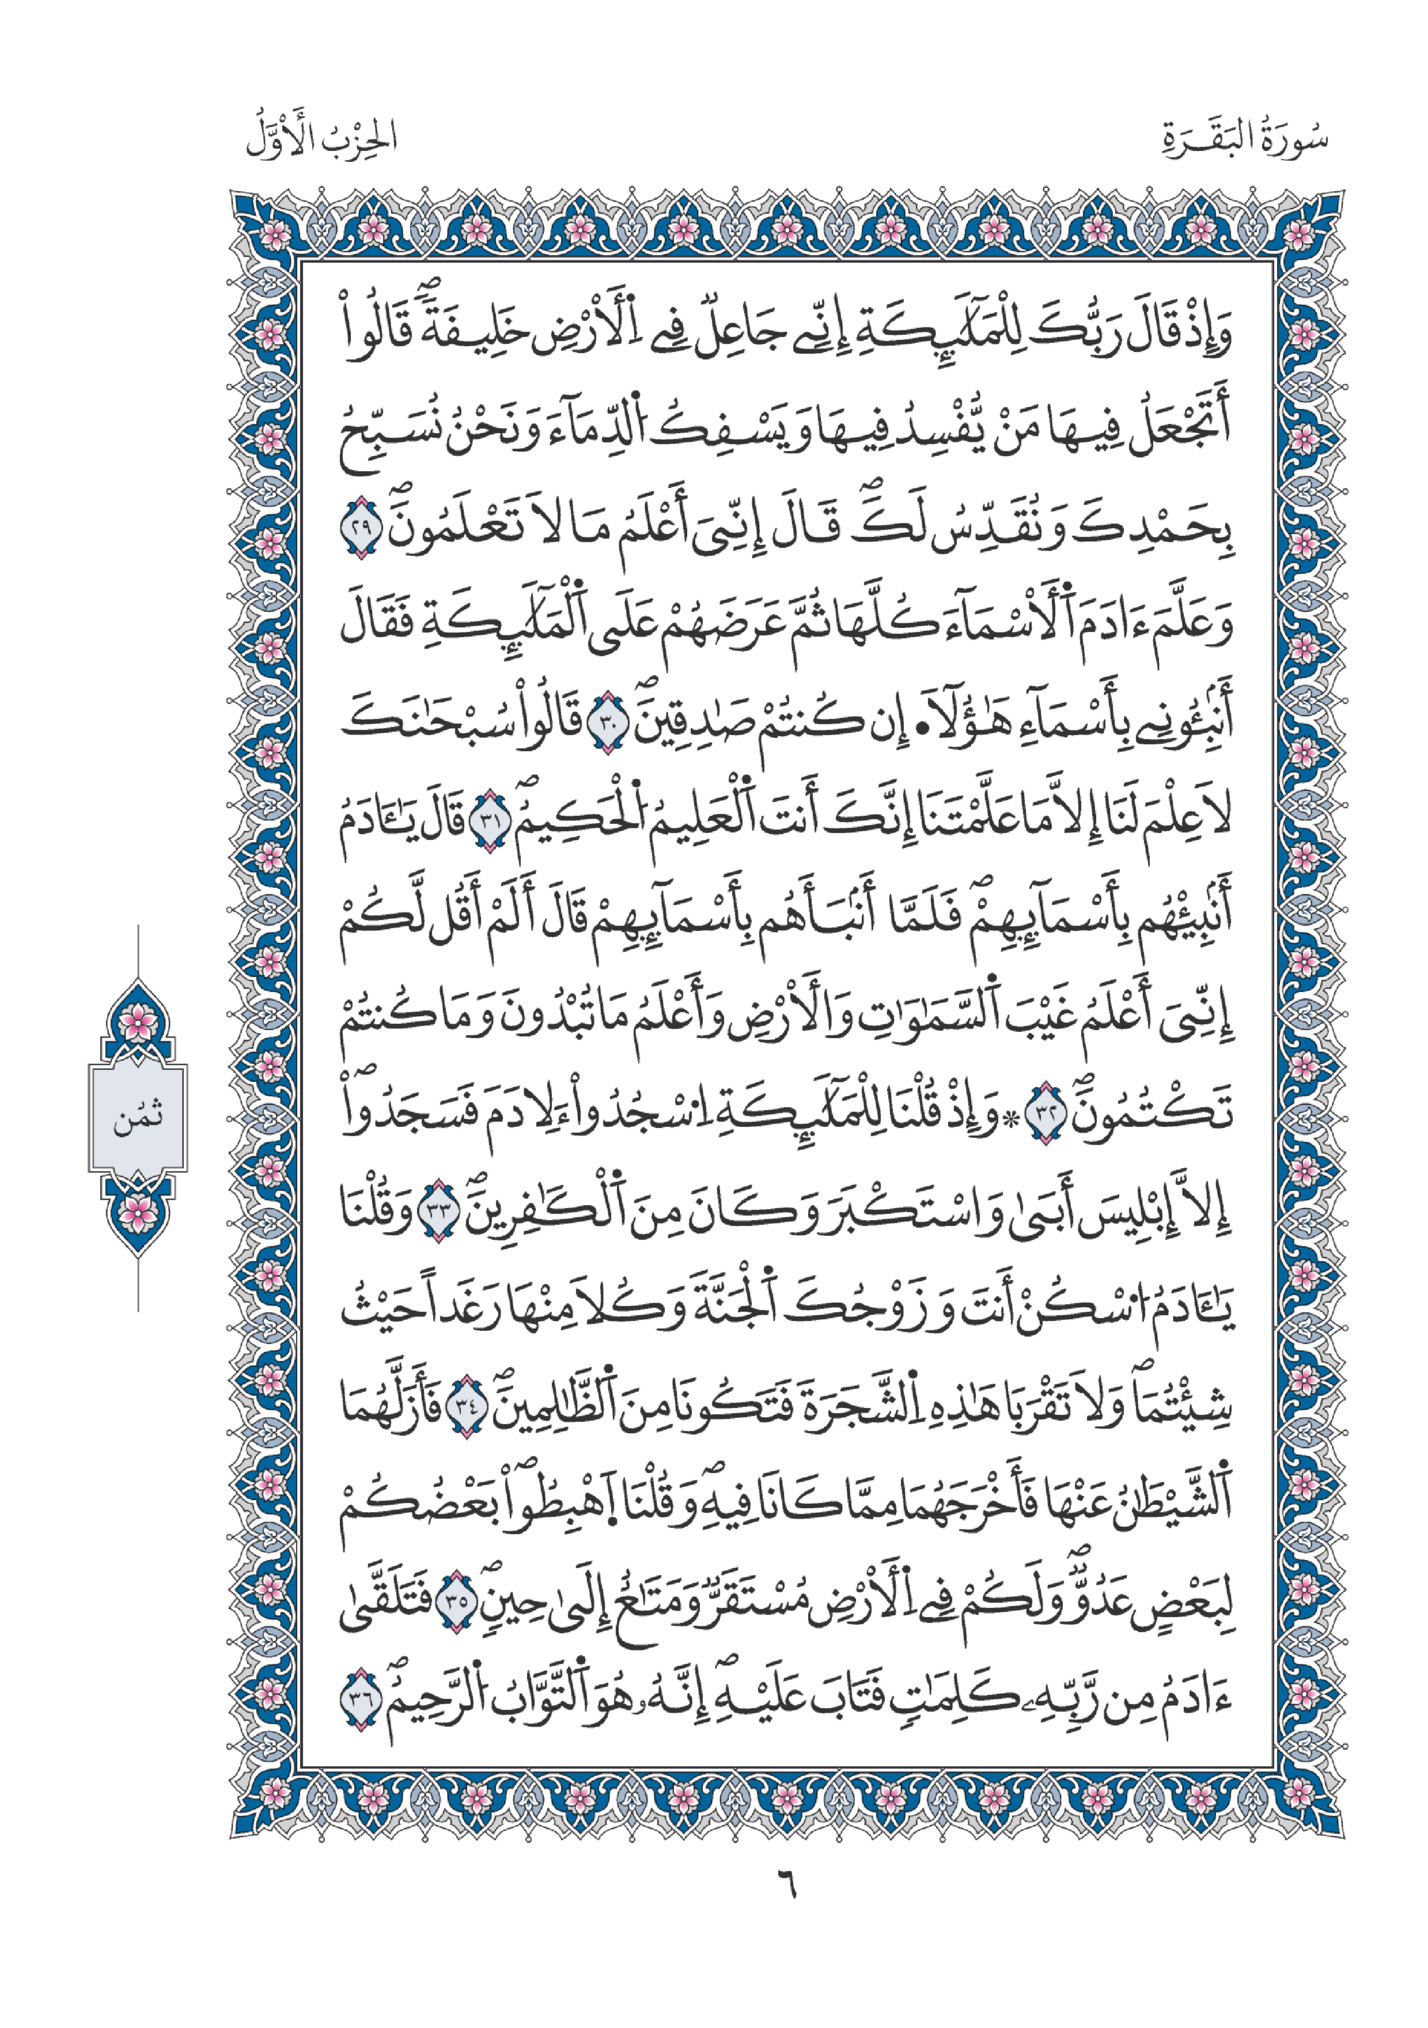 سُورَةُ البَقَرَةِ
الحِزْبُ الأَوَّلُ
وَإِذْ قَالَ رَبُّكَ لِلْمَلَٰٓئِكَةِ إِنِّے جَاعِلٌ فِے اِ۬لَارْضِ خَلِيفَةٗۖ قَالُوٓاْ
أَتَجْعَلُ فِيهَا مَنْ يُّفْسِدُ فِيهَا وَيَسْفِكُ اُ۬لدِّمَآءَ وَنَحْنُ نُسَبِّحُ
بِحَمْدِكَ وَنُقَدِّسُ لَكَۖ قَالَ إِنِّيَ أَعْلَمُ مَا لَا تَعْلَمُونَۖ ٢٩
وَعَلَّمَ ءَادَمَ اَ۬لَاسْمَآءَ كُلَّهَا ثُمَّ عَرَضَهُمْ عَلَى اَ۬لْمَلَٰٓئِكَةِ فَقَالَ
أَنۢبِـُٔونِے بِأَسْمَآءِ هَٰٓؤُلَآ. إِن كُنتُمْ صَٰدِقِينَۖ ٣٠ قَالُواْ سُبْحَٰنَكَ
لَا عِلْمَ لَنَا إِلَّا مَا عَلَّمْتَنَا إِنَّكَ أَنتَ اَ۬لْعَلِيمُ اُ۬لْحَكِيمُۖ ٣١ قَالَ يَٰٓـَٔادَمُ
أَنۢبِئْهُم بِأَسْمَآئِهِمْۖ فَلَمَّا أَنۢبَأَهُم بِأَسْمَآئِهِمْ قَالَ أَلَمْ أَقُل لَّكُمْ
إِنِّيَ أَعْلَمُ غَيْبَ اَ۬لسَّمَٰوَٰتِ وَالْأَرْضِ وَأَعْلَمُ مَا تُبْدُونَ وَمَا كُنتُمْ
تَكْتُمُونَۖ ٣٢ * وَإِذْ قُلْنَا لِلْمَلَٰٓئِكَةِ اِ۟سْجُدُواْ ءِلَادَمَ فَسَجَدُوٓاْ
إِلَّا إِبْلِيسَ أَبَىٰ وَاسْتَكْبَرَ وَكَانَ مِنَ اَ۬لْكَٰفِرِينَۖ ٣٣ وَقُلْنَا
يَٰٓـَٔادَمُ اُ۟سْكُنْ أَنتَ وَزَوْجُكَ اَ۬لْجَنَّةَ وَكُلَا مِنْهَا رَغَداً حَيْثُ
شِئْتُمَاۖ وَلَا تَقْرَبَا هَٰذِهِ اِ۬لشَّجَرَةَ فَتَكُونَا مِنَ اَ۬لظَّٰلِمِينَۖ ٣٤ فَأَزَلَّهُمَا
اَ۬لشَّيْطَٰنُ عَنْهَا فَأَخْرَجَهُمَا مِمَّا كَانَا فِيهِۖ وَقُلْنَا اَ۪هْبِطُواْۖ بَعْضُكُمْ
لِبَعْضٍ عَدُوّٞۖ وَلَكُمْ فِے اِ۬لْأَرْضِ مُسْتَقَرّٞ وَمَتَٰعٌ إِلَىٰ حِينٖۖ ٣٥ فَتَلَقَّىٰ
ءَادَمُ مِن رَّبِّهِۦ كَلِمَٰتٖ فَتَابَ عَلَيْهِۖ إِنَّهُۥ هُوَ اَ۬لتَّوَّابُ اُ۬لرَّحِيمُۖ ٣٦
ثُمُن
٦